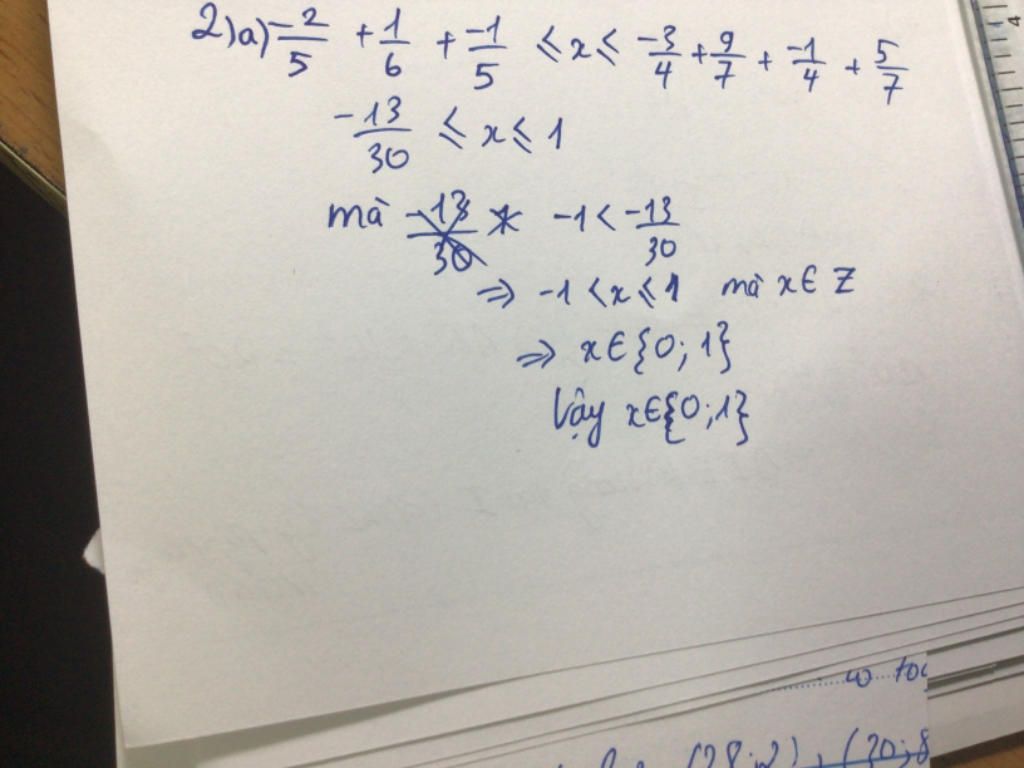 2)a) -2/5 + 1/6 + -1/5 ⩽ x ⩽ -3/4 + 9/7 + -1/4 + 5/7
-13/30 ⩽ x ⩽ 1
mà -1 < -13/30
⇒ -1 < x ⩽ 1 mà x ∈ Z
⇒ x ∈ {0; 1}
Vậy x ∈ {0; 1}
(28; 2), (20; 8